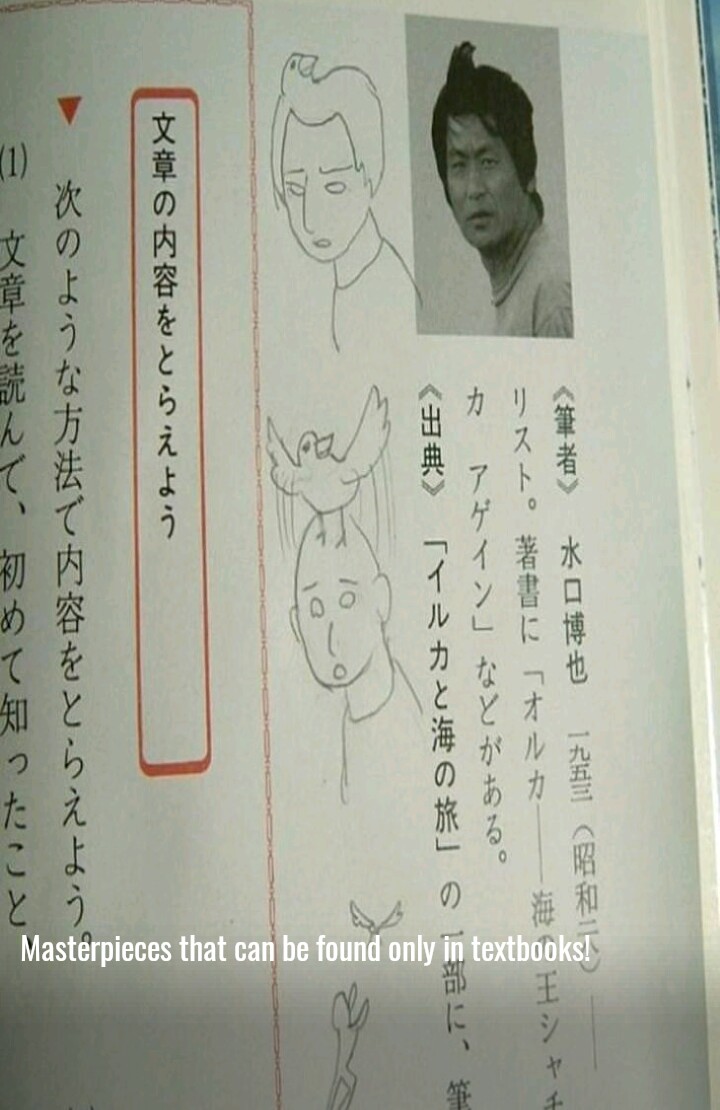 《筆者》 水口博也 一九五三(昭和二八)——
リスト。著書に「オルカ——海の王シャチ
カ アゲイン」などがある。
《出典》「イルカと海の旅」の一部に、筆
文章の内容をとらえよう
▼ 次のような方法で内容をとらえよう。
(1) 文章を読んで、初めて知ったこと、
Masterpieces that can be found only in textbooks!